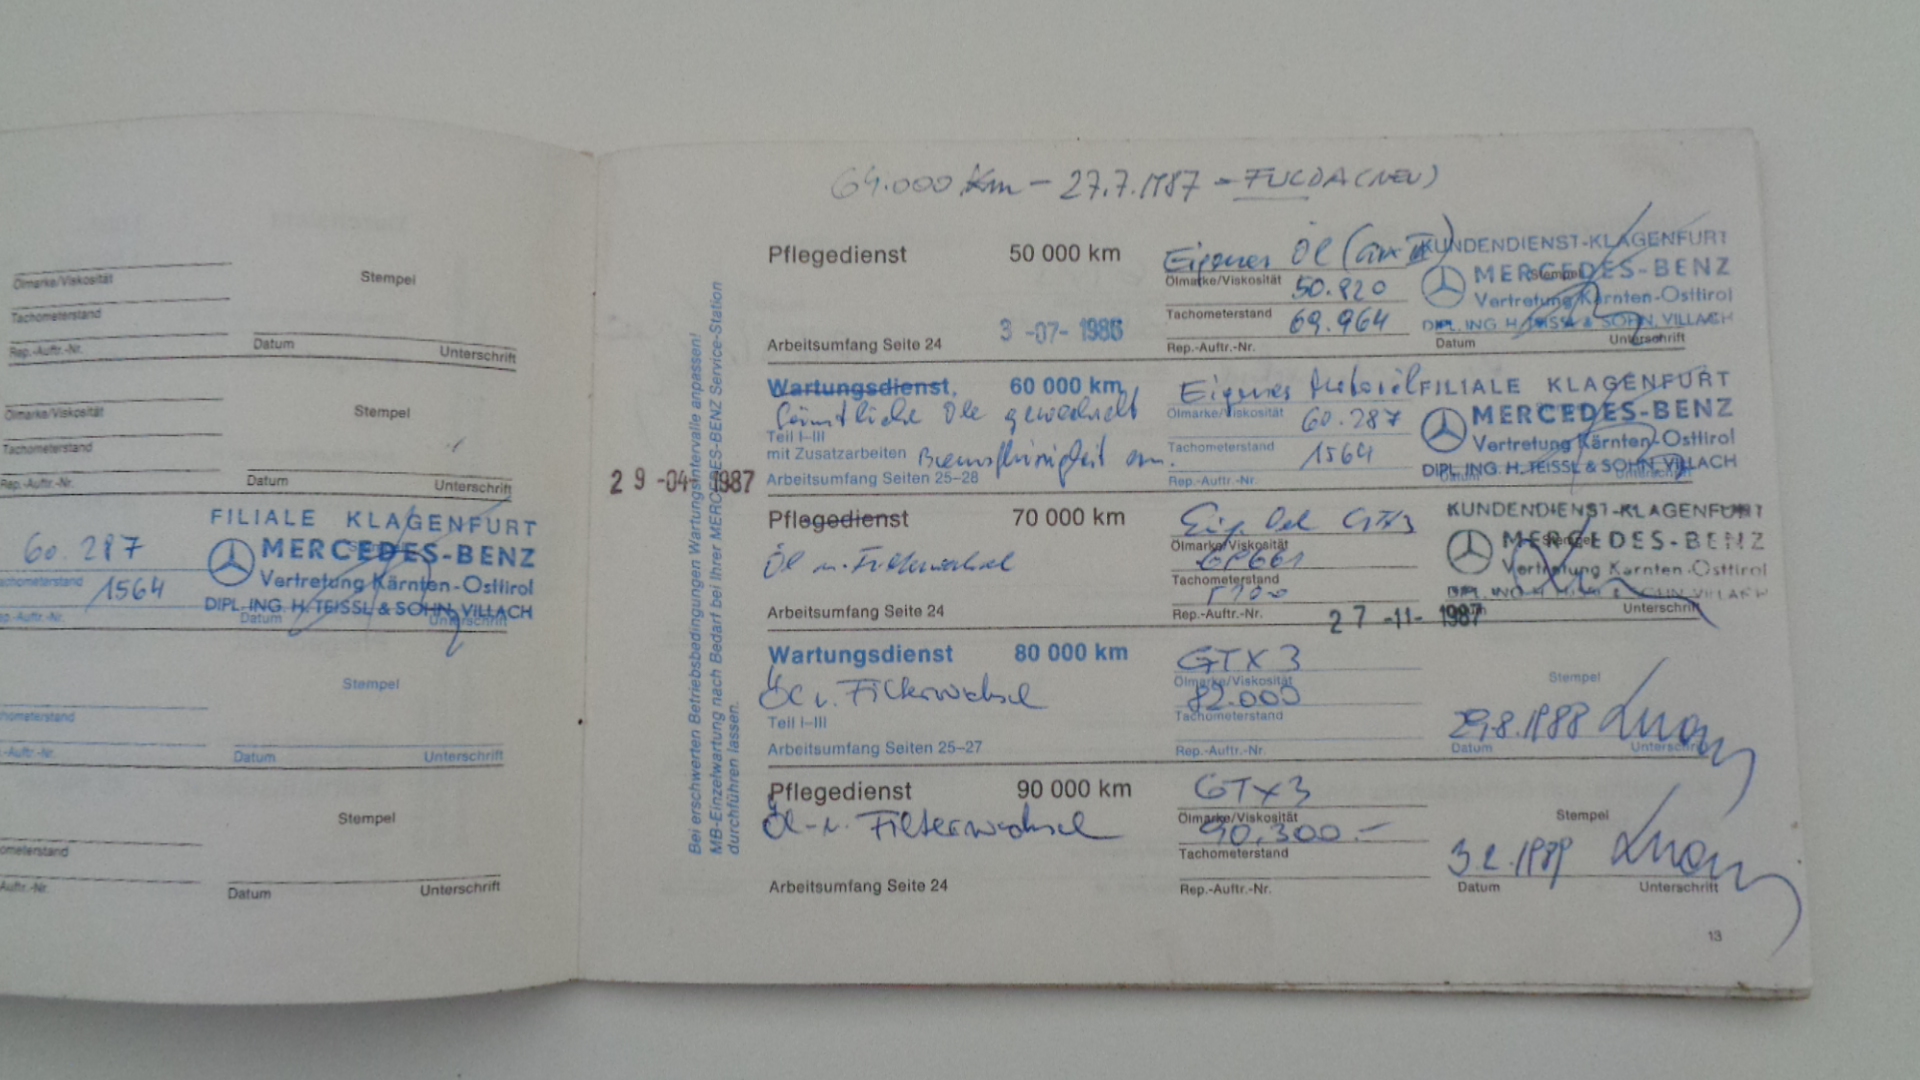 Ölmarke/Viskosität
Stempel
Tachometerstand
Rep.-Auftr.-Nr.
Datum
Unterschrift
Ölmarke/Viskosität
Stempel
Tachometerstand
Rep.-Auftr.-Nr.
Datum
Unterschrift
FILIALE KLAGENFURT
60.287
MERCEDES-BENZ
Vertretung Kärnten-Osttirol
chometerstand
1564
DIPL. ING. H. TEISSL & SOHN, VILLACH
Datum
Unterschrift
Stempel
chometerstand
-Auftr.-Nr.
Datum
Unterschrift
Stempel
ometerstand
Auftr.-Nr.
Datum
Unterschrift
Bei erschwerten Betriebsbedingungen Wartungsintervalle anpassen!
MB-Einzelwartung nach Bedarf bei Ihrer MERCEDES-BENZ Service-Station
durchführen lassen.
64.000 km - 27.7.1987 - FULDA (NEU)
Pflegedienst 50 000 km
Eigenes Öl
Ölmarke/Viskosität
50.820
Tachometerstand
69.964
Arbeitsumfang Seite 24
3 -07- 1986
Rep.-Auftr.-Nr.
KUNDENDIENST-KLAGENFURT
MERCEDES-BENZ
Stempel
Vertretung Kärnten-Osttirol
DIPL. ING. H. TEISSL & SOHN, VILLACH
Datum
Unterschrift
Wartungsdienst, 60 000 km
Sämtliche Öle gewechselt
Teil I–III
mit Zusatzarbeiten
Bremsflüssigkeit
29 -04- 1987
Arbeitsumfang Seiten 25–28
Eigenes Material
Ölmarke/Viskosität
60.287
Tachometerstand
1564
Rep.-Auftr.-Nr.
FILIALE KLAGENFURT
MERCEDES-BENZ
Vertretung Kärnten-Osttirol
DIPL. ING. H. TEISSL & SOHN, VILLACH
Pflegedienst 70 000 km
Öl u. Filterwechsel
Arbeitsumfang Seite 24
Eig. Oel GTX3
Ölmarke/Viskosität
Tachometerstand
Rep.-Auftr.-Nr.
27 -11- 1987
KUNDENDIENST-KLAGENFURT
MERCEDES-BENZ
Vertretung Kärnten-Osttirol
Unterschrift
Wartungsdienst 80 000 km
Öl u. Filterwechsel
Teil I–III
Arbeitsumfang Seiten 25–27
GTX 3
Ölmarke/Viskosität
82.000
Tachometerstand
Rep.-Auftr.-Nr.
Stempel
29.8.1988
Datum
Unterschrift
Pflegedienst 90 000 km
Öl- u. Filterwechsel
Arbeitsumfang Seite 24
GTX3
Ölmarke/Viskosität
90.300.-
Tachometerstand
Rep.-Auftr.-Nr.
Stempel
3.2.1989
Datum
Unterschrift
13